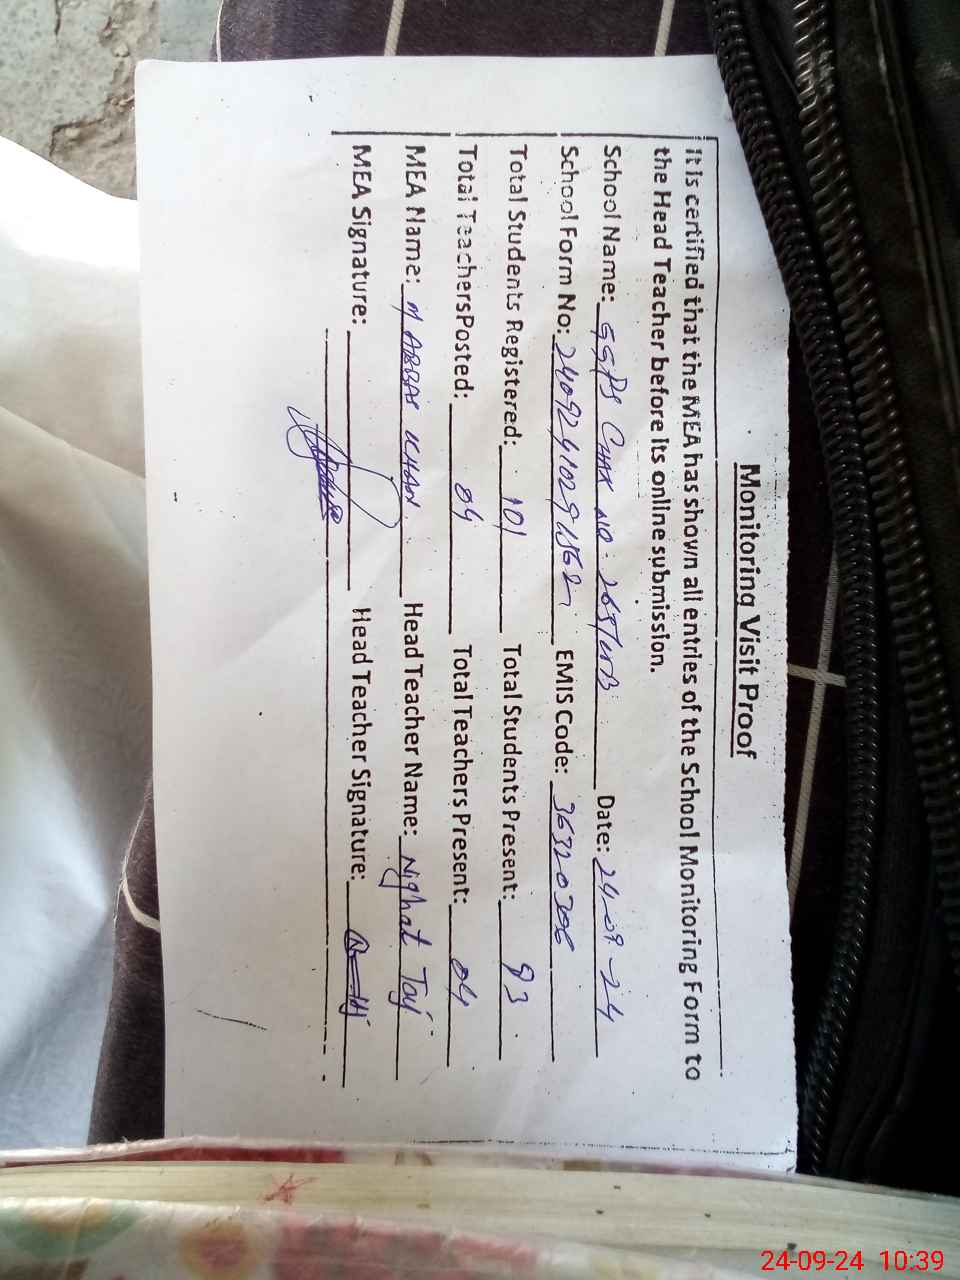 Monitoring Visit Proof
It is certified that the MEA has shown all entries of the School Monitoring Form to
the Head Teacher before its online submission.
School Name: GGPS CHAK NO. 265/WB Date: 24-09-24
School Form No: EMIS Code: 36320306
Total Students Registered: 101 Total Students Present: 93
Total TeachersPosted: 04 Total Teachers Present: 04
MEA Name: M ABBAS KHAN Head Teacher Name: Nighat Taj
MEA Signature: Head Teacher Signature:
24-09-24 10:39